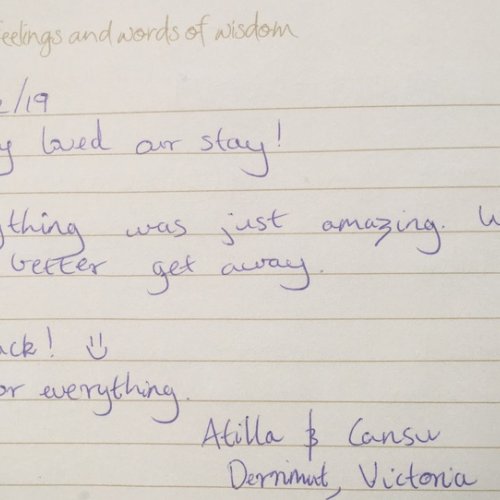 feelings and words of wisdom
/19
y loved our stay!
ything was just amazing. W
better get away.
ack! :)
or everything.
Atilla & Cansu
Derrimut, Victoria